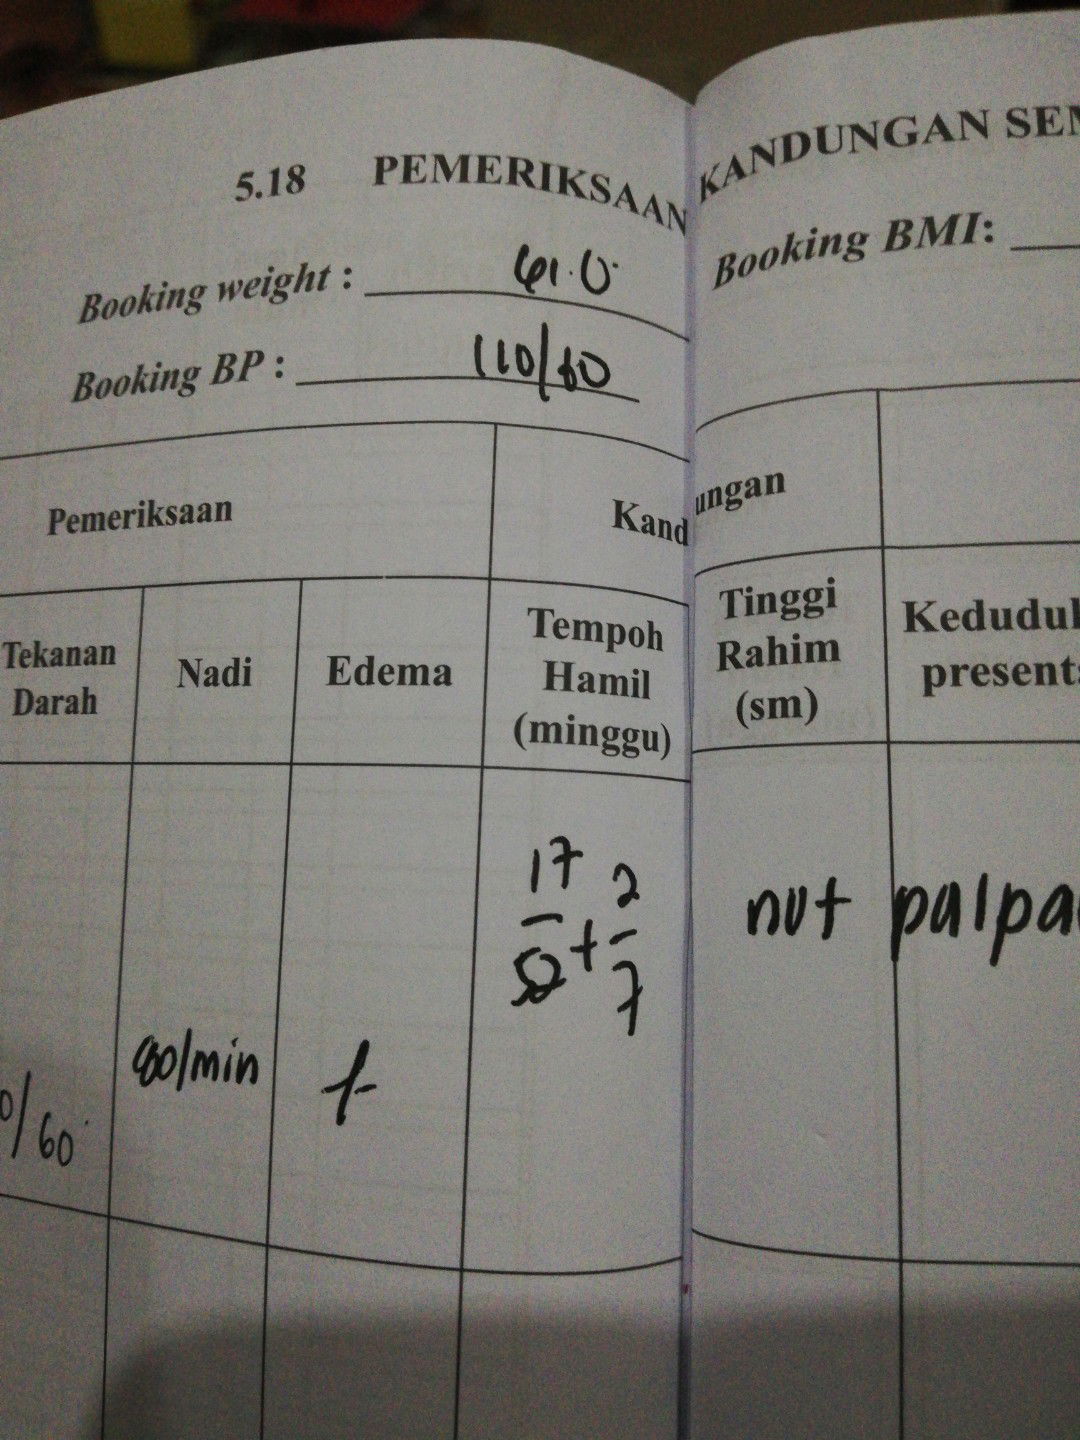 5.18 PEMERIKSAAN KANDUNGAN SEM
Booking weight : 61.0
Booking BMI:
Booking BP : 110/60
Pemeriksaan
Kandungan
Tekanan Darah
Nadi
Edema
Tempoh Hamil (minggu)
Tinggi Rahim (sm)
Keduduk
present
17/52 + 2/7
not palpa
0/60
80/min